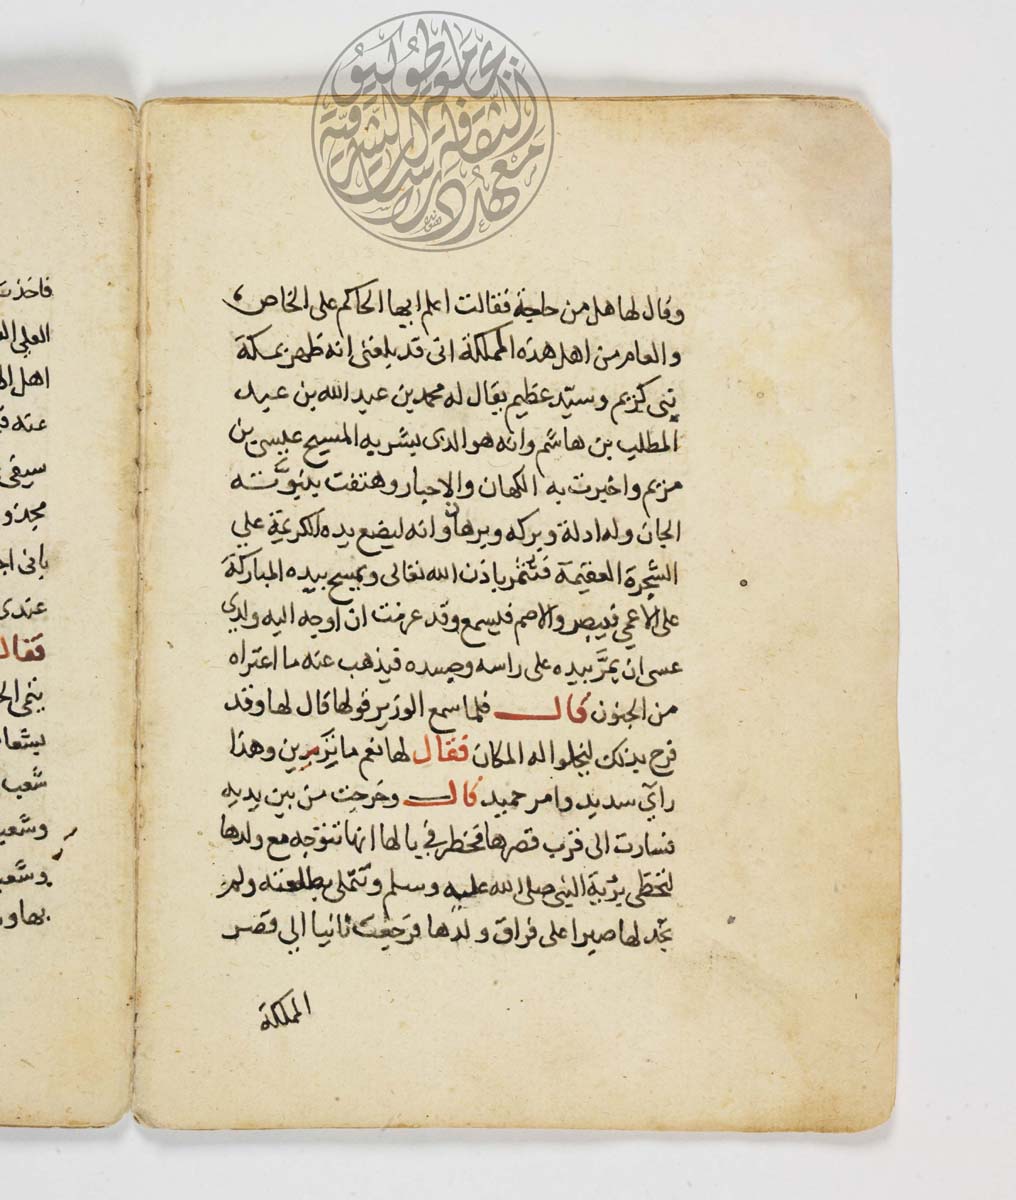 وقال لها هل من حاجة فقالت اعلم ايها الحاكم على الخاص
والعام من اهل هذه المملكة انى قد بلغنى انه ظهر بمكة
نبى كريم وسيّد عظيم يقال له محمد بن عبد الله بن عبد
المطلب بن هاشم وانه هو الذى بشر به المسيح عيسى بن
مريم واخبرت به الكهان والاحبار وهتفت بنبوّته
الجان وله ادلة وبركه وبرهان وانه ليضع يده الكريمة على
الشجرة العقيمة فتثمر باذن الله تعالى ويمسح بيده المباركة
على الاعمى فيبصر والاصم فيسمع وقد عزمت ان اوجه اليه ولدى
عسى ان يمرَّ بيده على راسه وجسده فيذهب عنه ما اعتراه
من الجنون قال فلما سمع الوزير قولها قال لها وقد
فرح بذلك ليخلوا له المكان فقال لها نعم ما تزمرين وهذا
رأى سديد وامر حميد قال وخرجت من بين يديه
فسارت الى قرب قصرها فخطر فى بالها انها تتوجه مع ولدها
لتحظى برؤية النبى صلى الله عليه وسلم وتتملى بطلعته ولم
تجد لها صبرا على فراق ولدها فرجعت ثانيا الى قصر
المملكة
فاخذت
اهل
عنه
سيفى
عندى
فقال
شعب
جامعة طوكيو
معهد دراسات الثقافة الشرقية